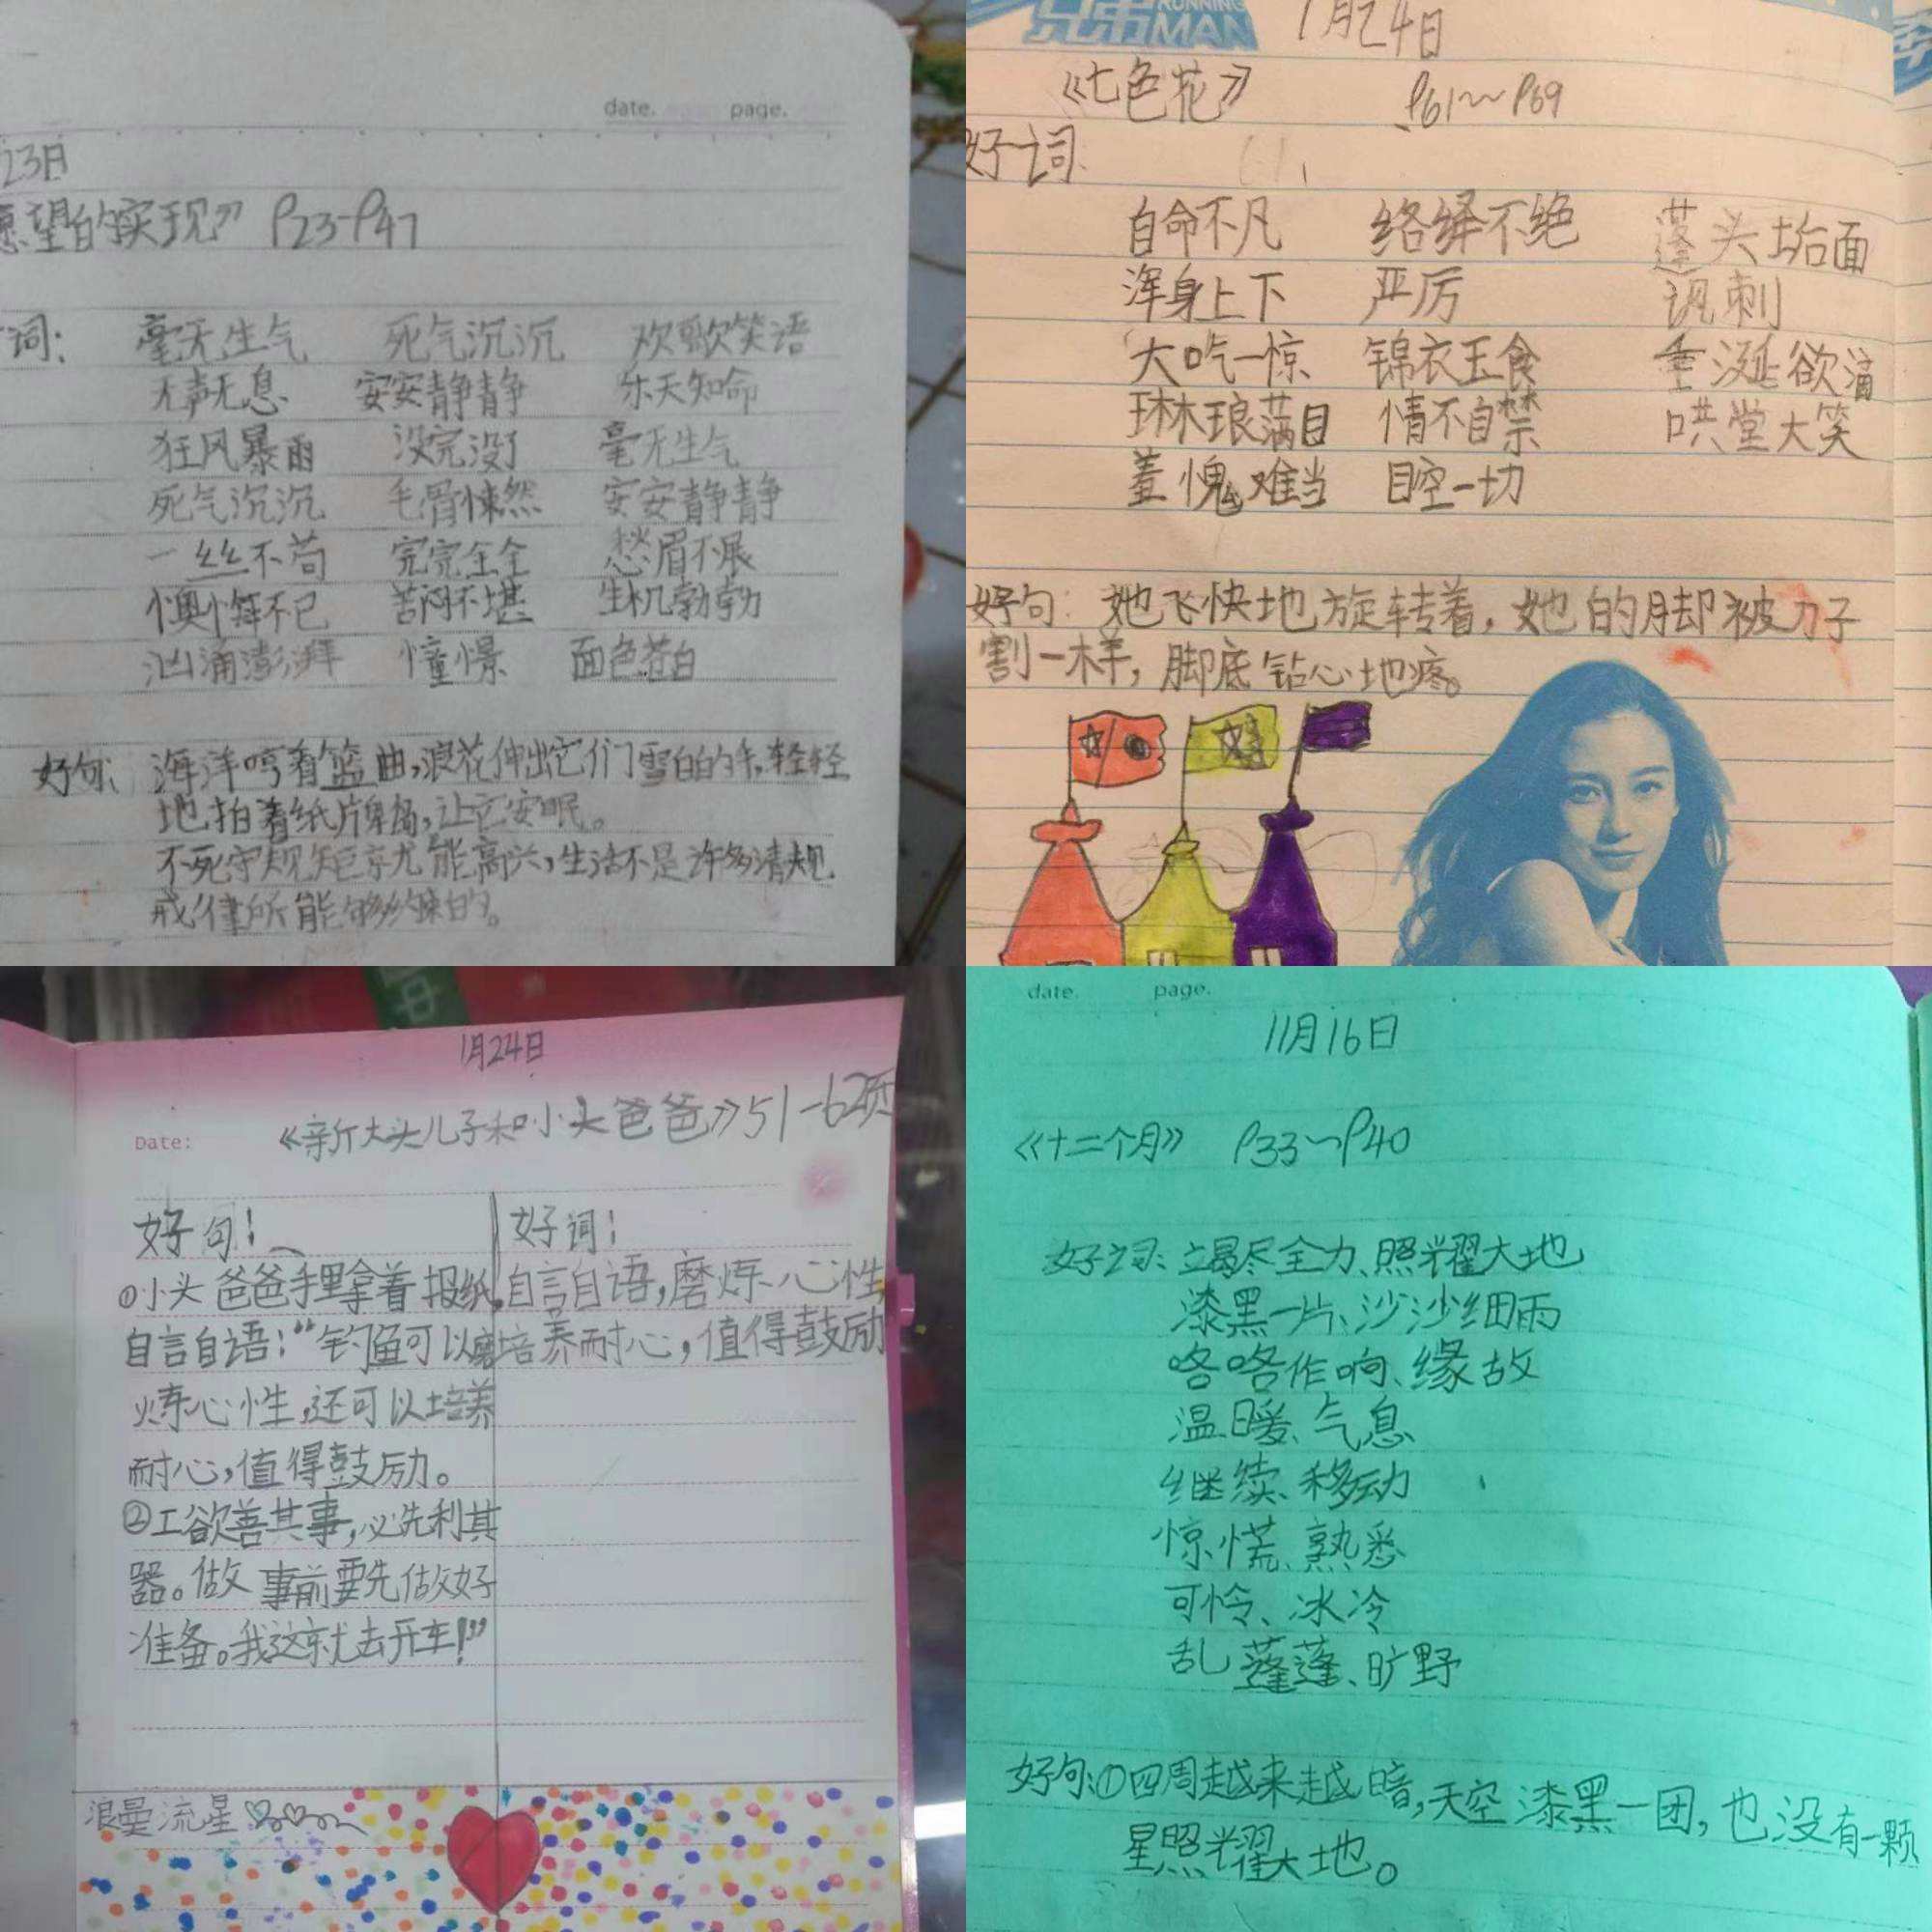 date. page.
23日
愿望的实现》 P23-P47
词: 毫无生气 死气沉沉 欢歌笑语
无声无息 安安静静 乐天知命
狂风暴雨 没完没了 毫无生气
死气沉沉 毛骨悚然 安安静静
一丝不苟 完完全全 愁眉不展
懊悔不已 苦闷不堪 生机勃勃
汹涌澎湃 憧憬 面色苍白
好句: 海洋哼着篮曲,浪花伸出它们雪白的手,轻轻
地拍着纸片卑岛,让它安眠。
不死守规矩京尤能高兴,生活不是许多清规
戒律所能够约束的。
兄弟 RUNNING MAN
1月24日
《七色花》 P61~P69
好词
自命不凡 络绎不绝 蓬头垢面
浑身上下 严厉 讽刺
大吃一惊 锦衣玉食 垂涎欲滴
琳琅满目 情不自禁 哄堂大笑
羞愧难当 目空一切
好句: 她飞快地旋转着,她的脚被刀子
割一样,脚底钻心地疼。
1月24日
Date: 《新大头儿子和小头爸爸》51-62页
好句! 好词!
①小头爸爸手里拿着报纸, 自言自语,磨炼心性
自言自语:“钓鱼可以磨 培养耐心,值得鼓励
炼心性,还可以培养
耐心,值得鼓励。
②工欲善其事,必先利其
器。做事前要先做好
准备。我这就去开车!”
浪曼流星
date. page.
11月16日
《十二个月》 P33~P40
好词:竭尽全力、照耀大地
漆黑一片、沙沙细雨
咯咯作响、缘故
温暖、气息
继续、移动
惊慌、熟悉
可怜、冰冷
乱蓬蓬、旷野
好句:①四周越来越暗,天空漆黑一团,也没有一颗
星照耀大地。